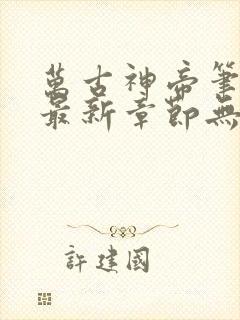 萬古神帝筆
最新章節無
許建國